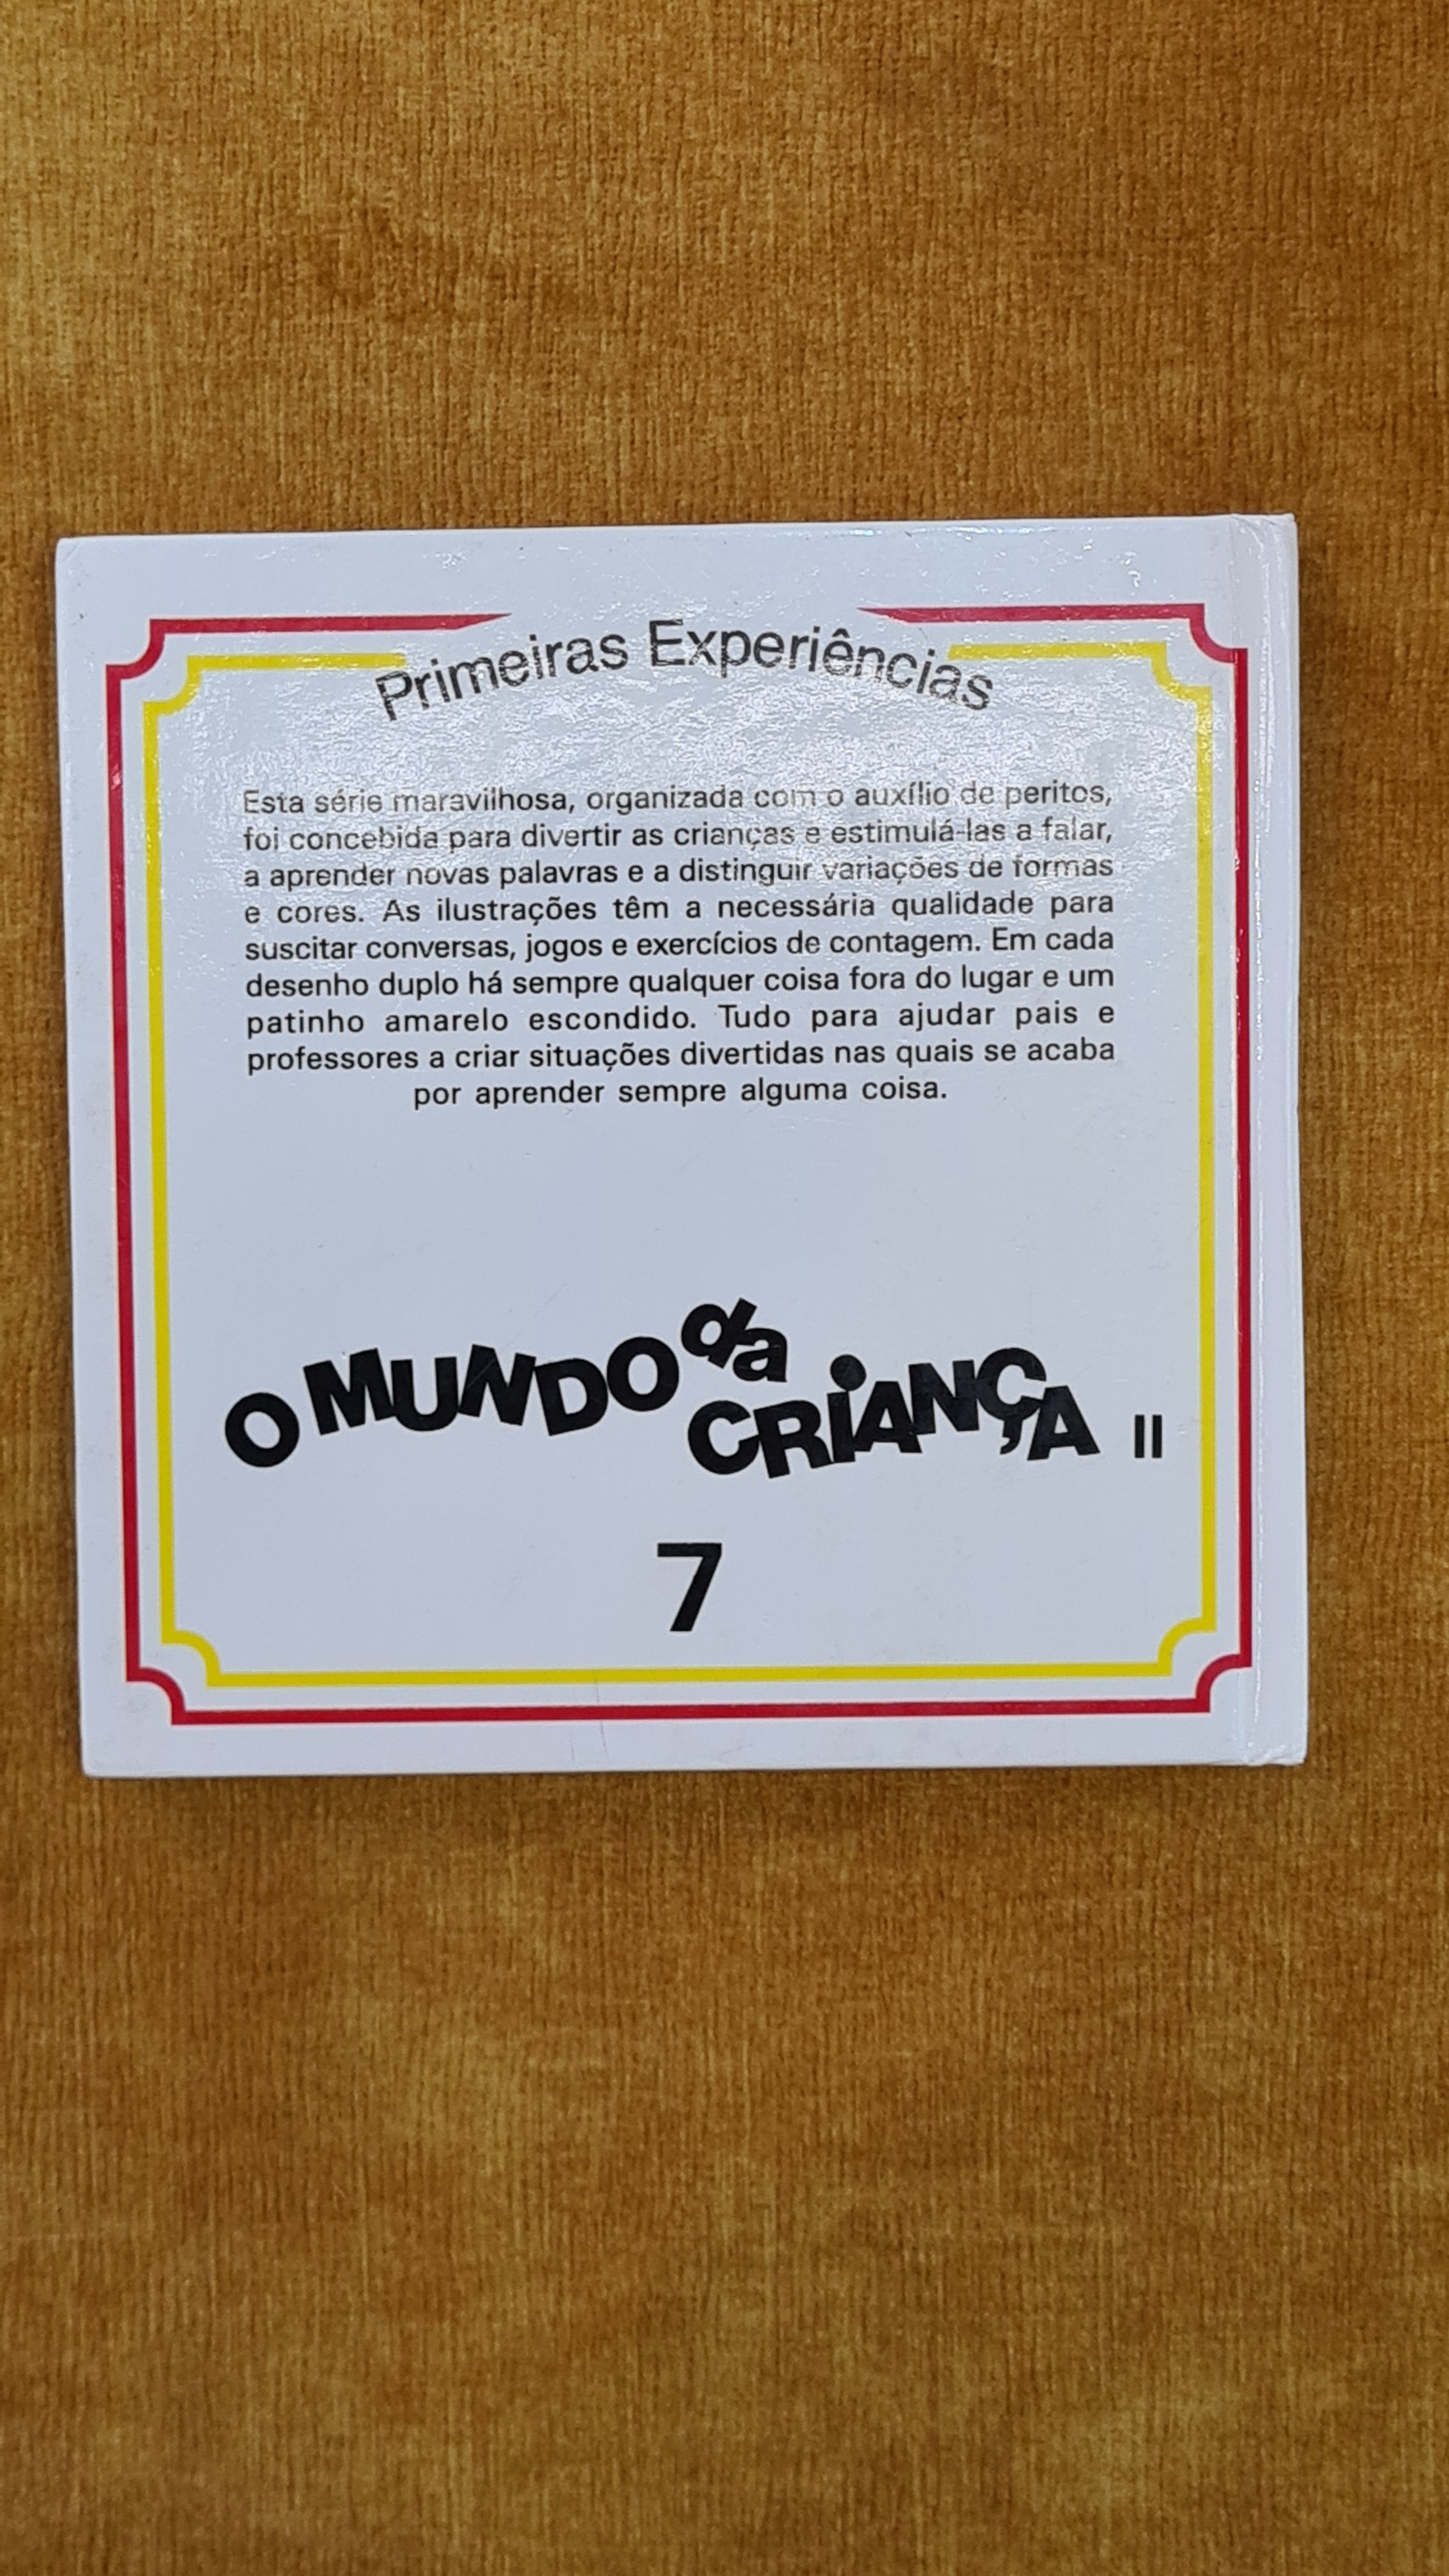 Primeiras Experiências
Esta série maravilhosa, organizada com o auxílio de peritos,
foi concebida para divertir as crianças e estimulá-las a falar,
a aprender novas palavras e a distinguir variações de formas
e cores. As ilustrações têm a necessária qualidade para
suscitar conversas, jogos e exercícios de contagem. Em cada
desenho duplo há sempre qualquer coisa fora do lugar e um
patinho amarelo escondido. Tudo para ajudar pais e
professores a criar situações divertidas nas quais se acaba
por aprender sempre alguma coisa.
O MUNDO da
CRiANÇA II
7